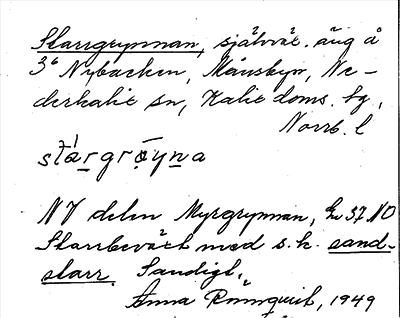 Starrgrynnan, självät. äng å
3⁶ Nybacken, Månsbyn, Ne-
derkalix sn, Kalix doms. hg,
Norrb. l
stárgrøyna
NV delen Myrgrynnan, Ev 37 NO
Starrbeväxt med s.k. sand-
starr. Sandigt.
Anna Rönnqvist, 1949